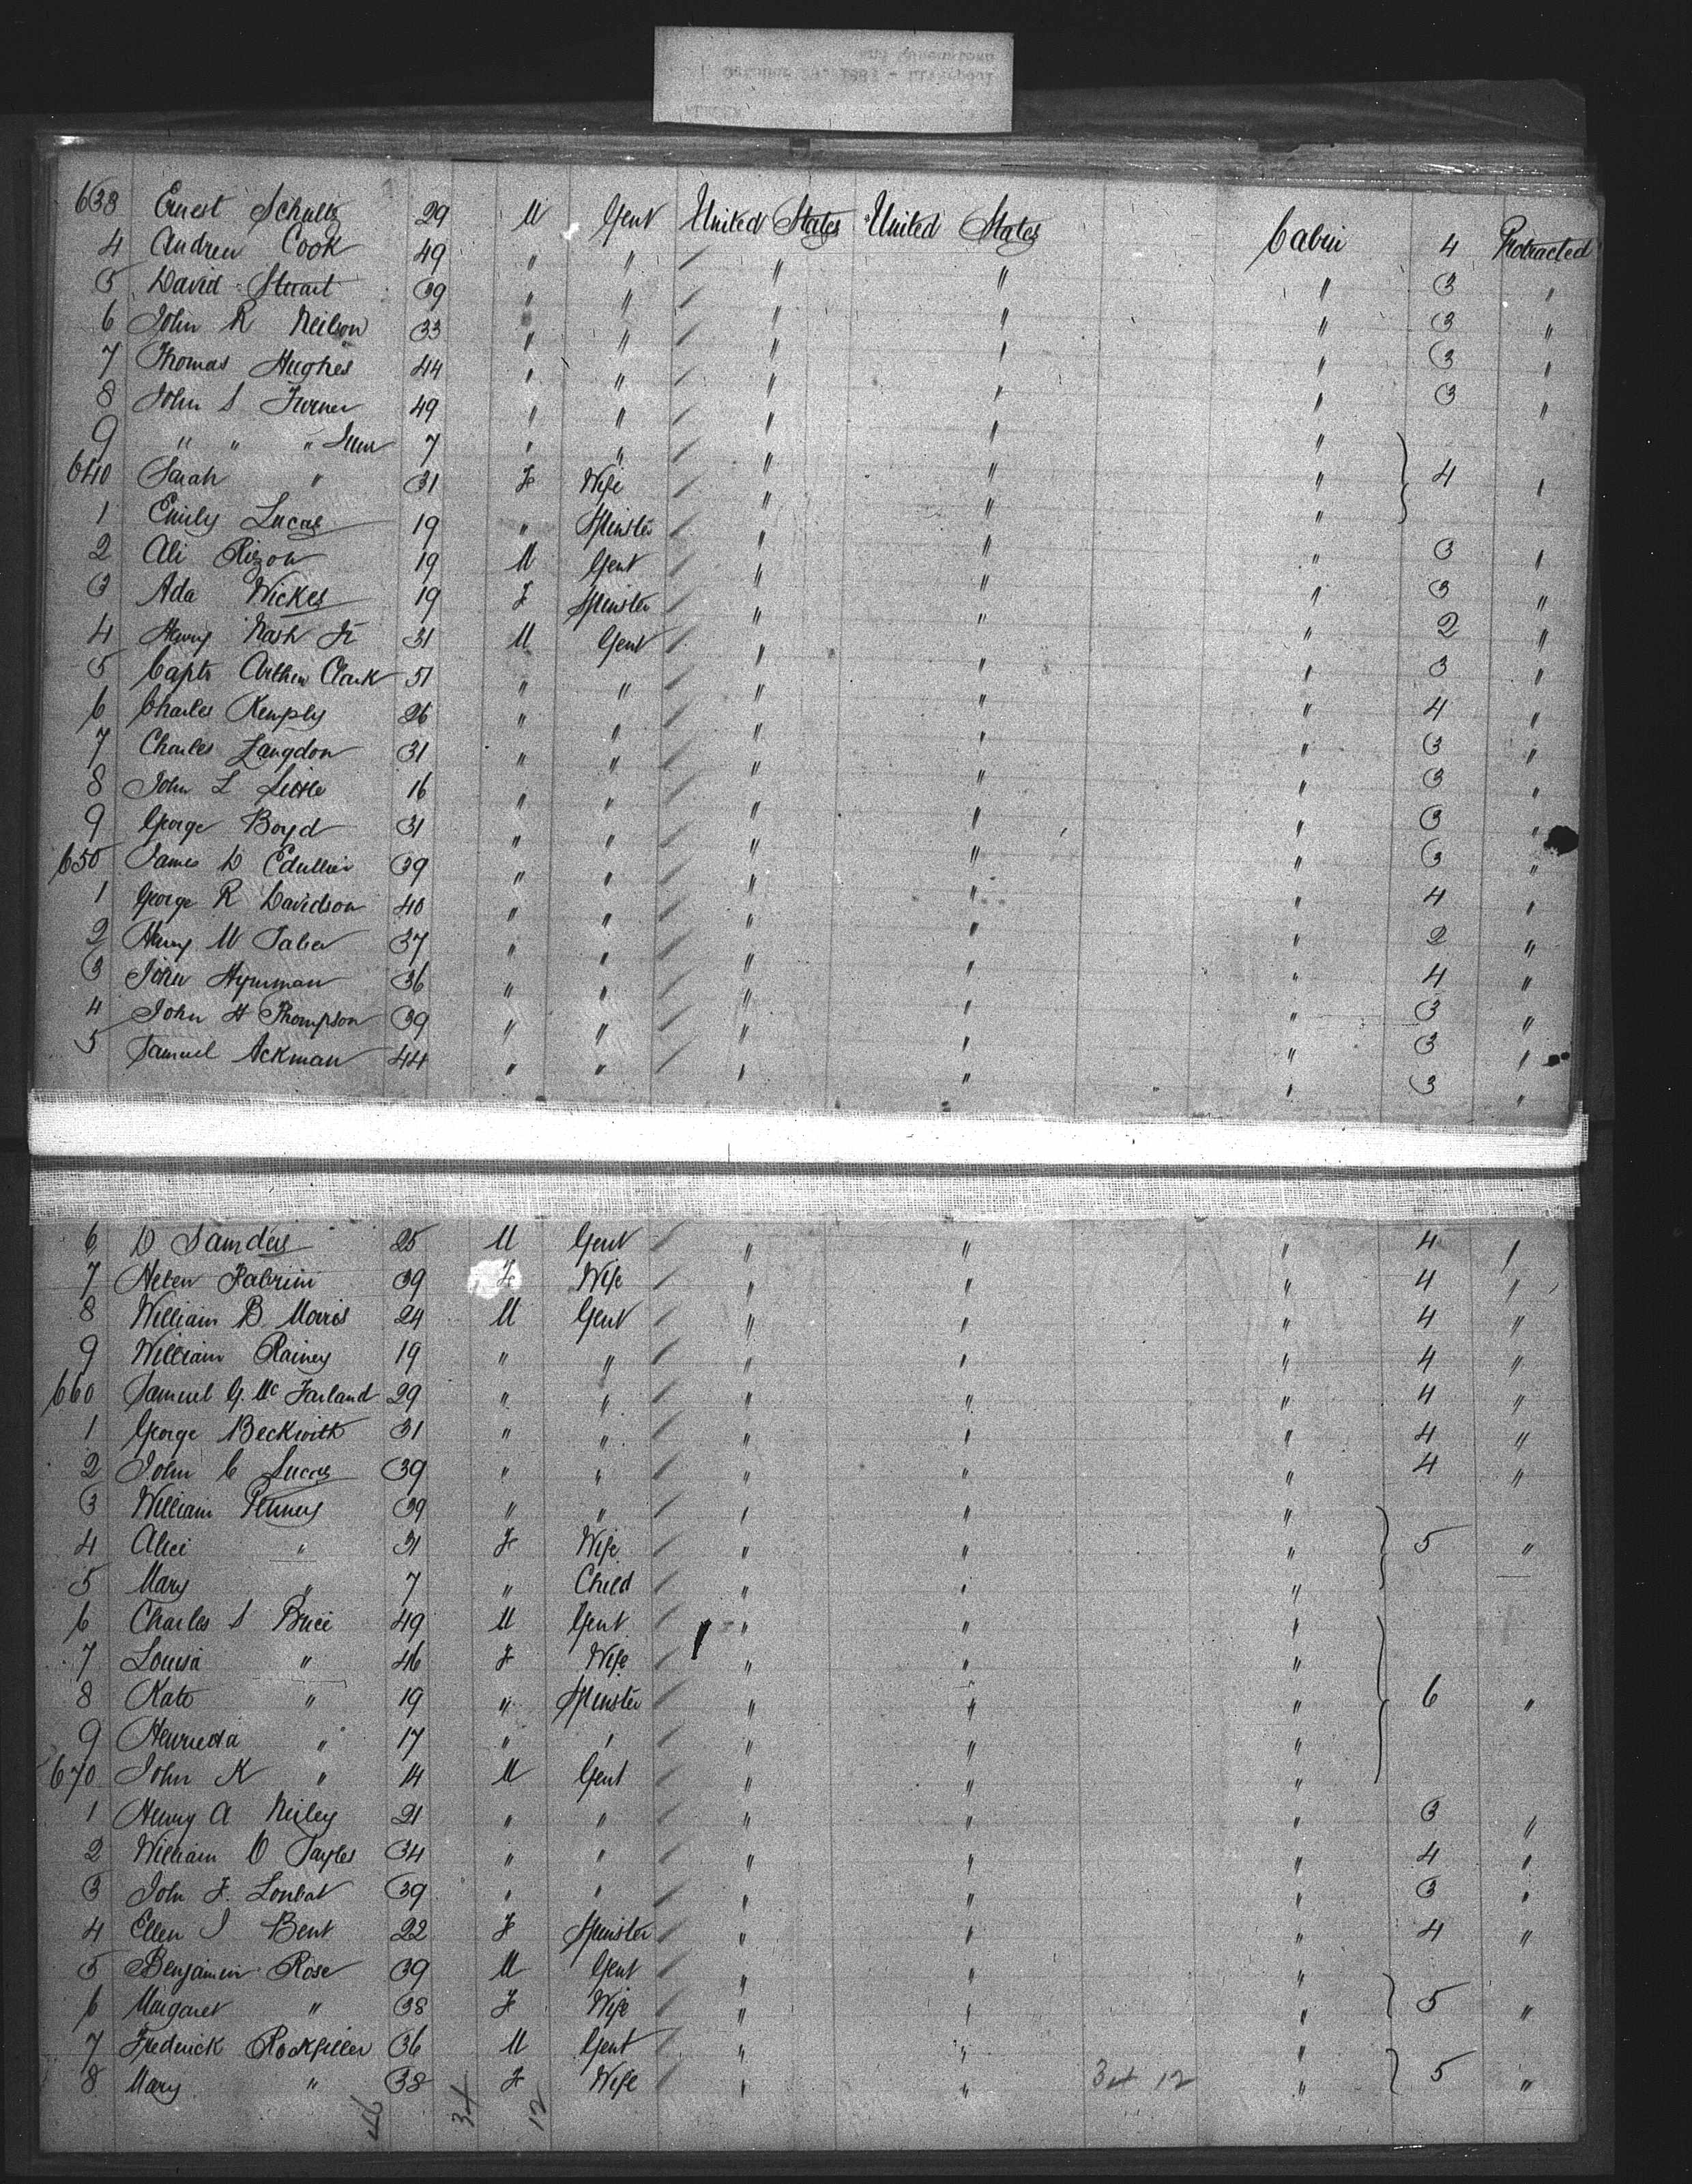 638 Ernest Schultz 29 M Gent United States United States Cabin 4 Protracted
4 Andrew Cook 49 " " " " " 3 "
5 David Stuart 39 " " " " " 3 "
6 John R Neilson 33 " " " " " 3 "
7 Thomas Hughes 44 " " " " " 3 "
8 John S Turner 49 " " " " "
9 " " " Junr 7 " " " " "
640 Sarah " 31 F Wife " " " 4 "
1 Emily Lucas 19 " Spinster " " " 3 "
2 Ali Rizow 19 M Gent " " " 3 "
3 Ada Wickes 19 F Spinster " " " 2 "
4 Henry Nash Jr 31 M Gent " " " 3 "
5 Capt Arthur Clark 51 " " " " " 4 "
6 Charles Kemply 26 " " " " " 3 "
7 Charles Langdon 31 " " " " " 3 "
8 John L Little 16 " " " " " 3 "
9 George Boyd 31 " " " " " 3 "
650 James D 39 " " " " " 4 "
1 George R Davidson 40 " " " " " 2 "
2 Henry M Taber 37 " " " " " 4 "
3 John Hyneman 36 " " " " " 3 "
4 John H Thompson 39 " " " " " 3 "
5 Samuel Ackman 44 " " " " " 3 "
6 D Sanders 25 M Gent " " " 4 "
7 Helen Fabrini 39 F Wife " " " 4 "
8 William B Morris 24 M Gent " " " 4 "
9 William Rainey 19 " " " " " 4 "
660 Samuel G. McFarland 29 " " " " " 4 "
1 George Beckwith 31 " " " " " 4 "
2 John C Lucas 39 " " " " " 4 "
3 William Penney 39 " " " " "
4 Alice " 31 F Wife " " " 5 "
5 Mary " 7 " Child " " "
6 Charles S Brice 49 M Gent " " "
7 Louisa " 46 F Wife " " "
8 Kate " 19 " Spinster " " " 6 "
9 Henrietta " 17 " " " " "
670 John K " 14 M Gent " " "
1 Henry A Neiley 21 " " " " " 3 "
2 William O Sayles 34 " " " " " 4 "
3 John F. Loubat 39 " " " " " 3 "
4 Ellen J Bent 22 F Spinster " " " 4 "
5 Benjamin Rose 39 M Gent " " "
6 Margaret " 38 F Wife " " " 5 "
7 Frederick Rockfeller 36 M Gent " " "
8 Mary " 38 F Wife " " 34 12 " 5 "
46 34 12